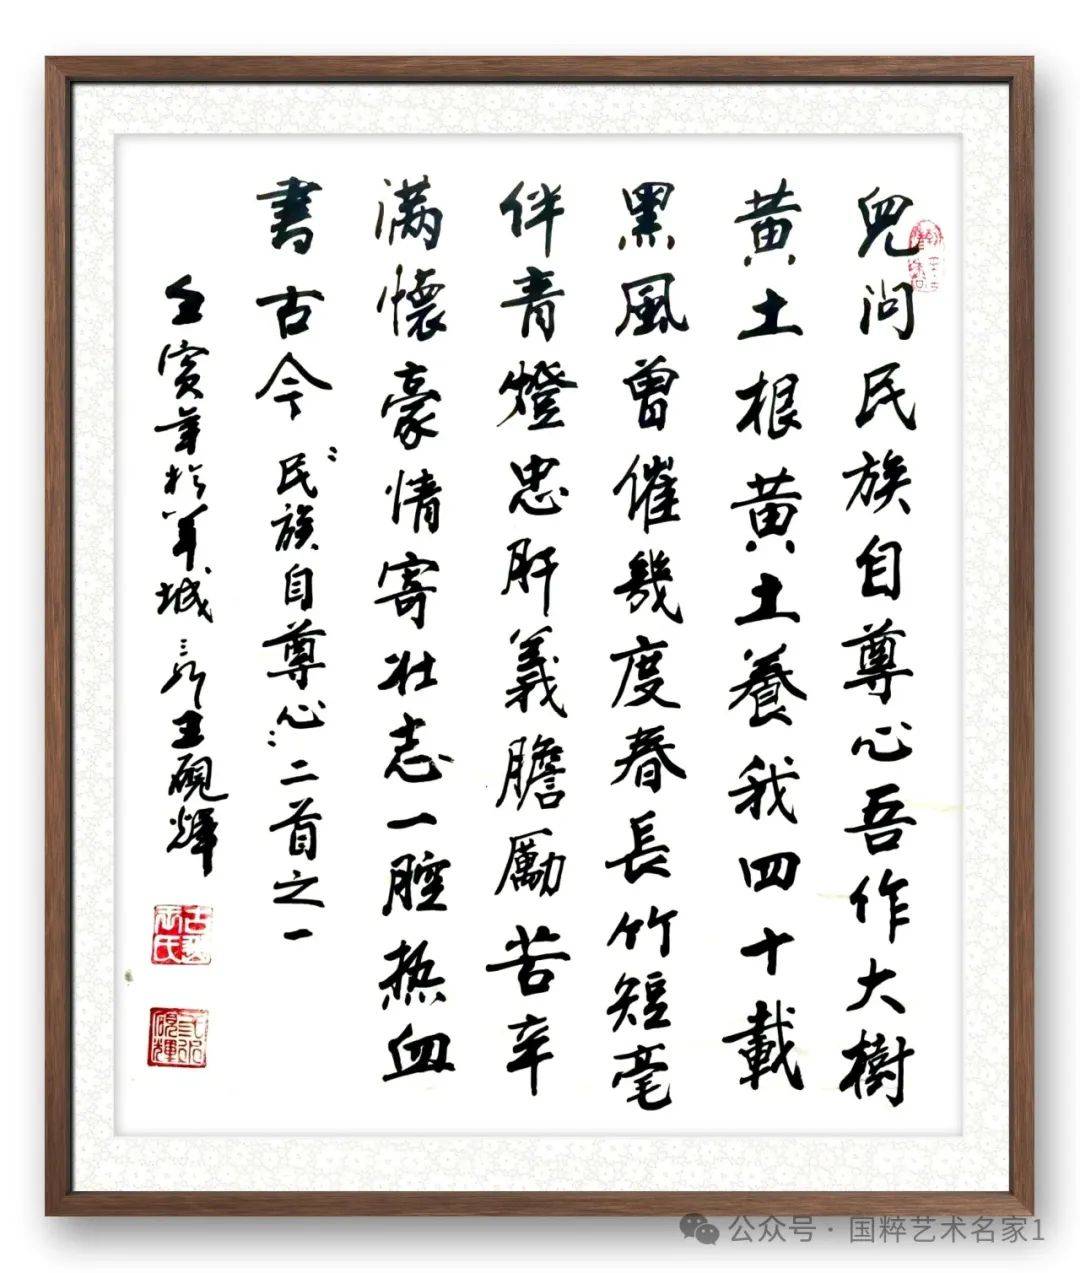 兒问民族自尊心吾作大樹
黄土根黄土養我四十載
黑風曾催幾度春長竹短毫
伴青燈忠肝義膽勵苦辛
满懷豪情寄壮志一腔热血
書古今“民族自尊心”二首之一
壬寅年於羊城王硯輝
公众号·国粹艺术名家1